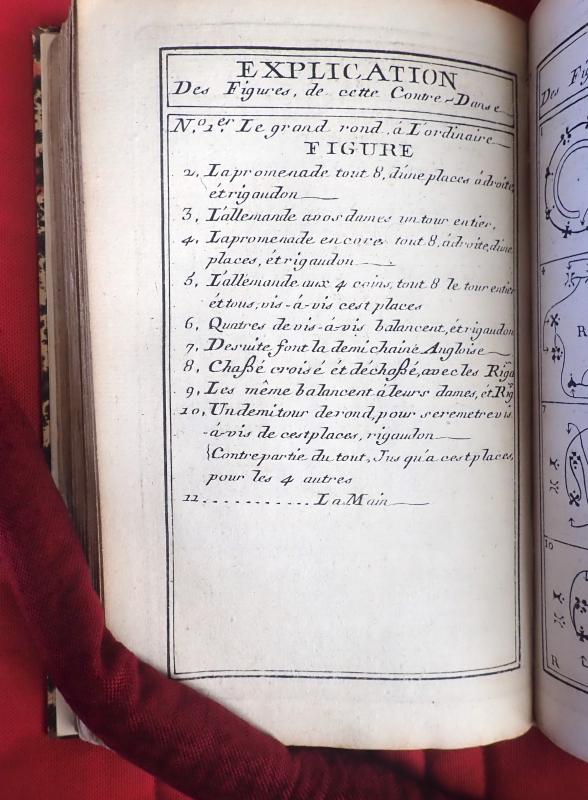 EXPLICATION
Des Figures, de cette Contre-Danse
N.º 1.er Le grand rond, á L'ordinaire
FIGURE
2, La promenade tout 8, d'une places á droite,
ét rigaudon
3, L'allemande a vos dames un tour entier,
4, La promenade encore tout 8, á droite, d'une
places, ét rigaudon
5, L'allemande aux 4 coins, tout 8 le tour entier
ét tous, vis-á-vis cest places
6, Quatres de vis-á-vis balancent, ét rigaudon
7, De suite, font la demi chaine Angloise
8, Chaßé croisé ét déchaßé, avec les Riga
9, Les même balancent á leurs dames, ét Rig
10, Un demi tour de rond, pour se remetre vis
-á-vis de cest places, rigaudon
Contre partie du tout, Jus qu'a cest places,
pour les 4 autres
11 ............ La Main
Des Fi
1
4
R
7
10
R